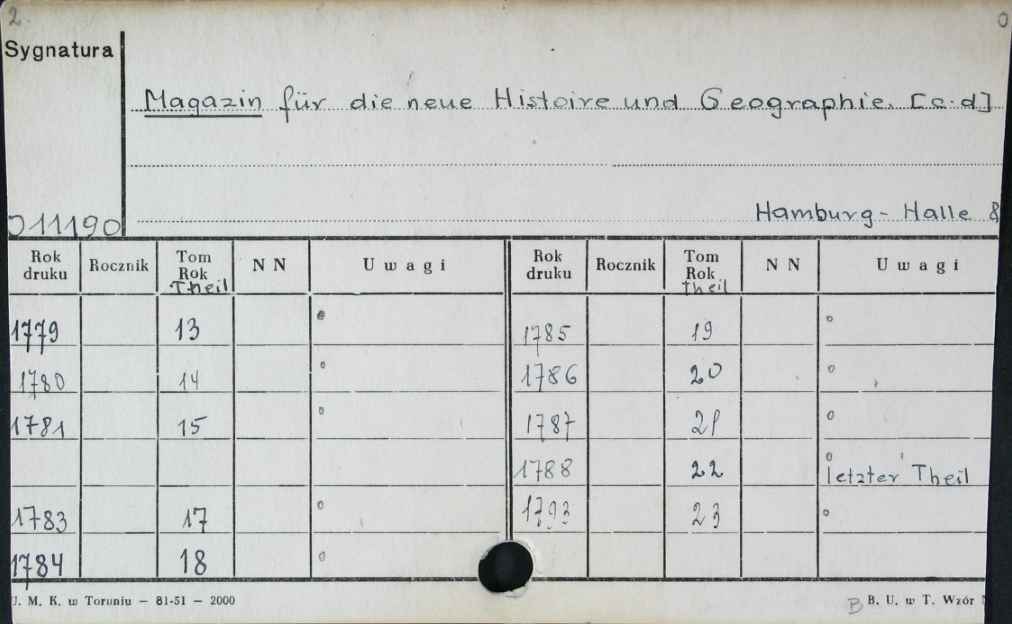 2.
Sygnatura
Magazin für die neue Histoire und Geographie. [c.d]
011190
Hamburg - Halle 8
Rok druku Rocznik Tom Rok Theil N N Uwagi Rok druku Rocznik Tom Rok theil N N Uwagi
1779 13 1785 19
1780 14 1786 20
1781 15 1787 21
1788 22 letzter Theil
1783 17 1793 23
1784 18
U. M. K. w Toruniu — 81-51 — 2000
B B. U. w T. Wzór